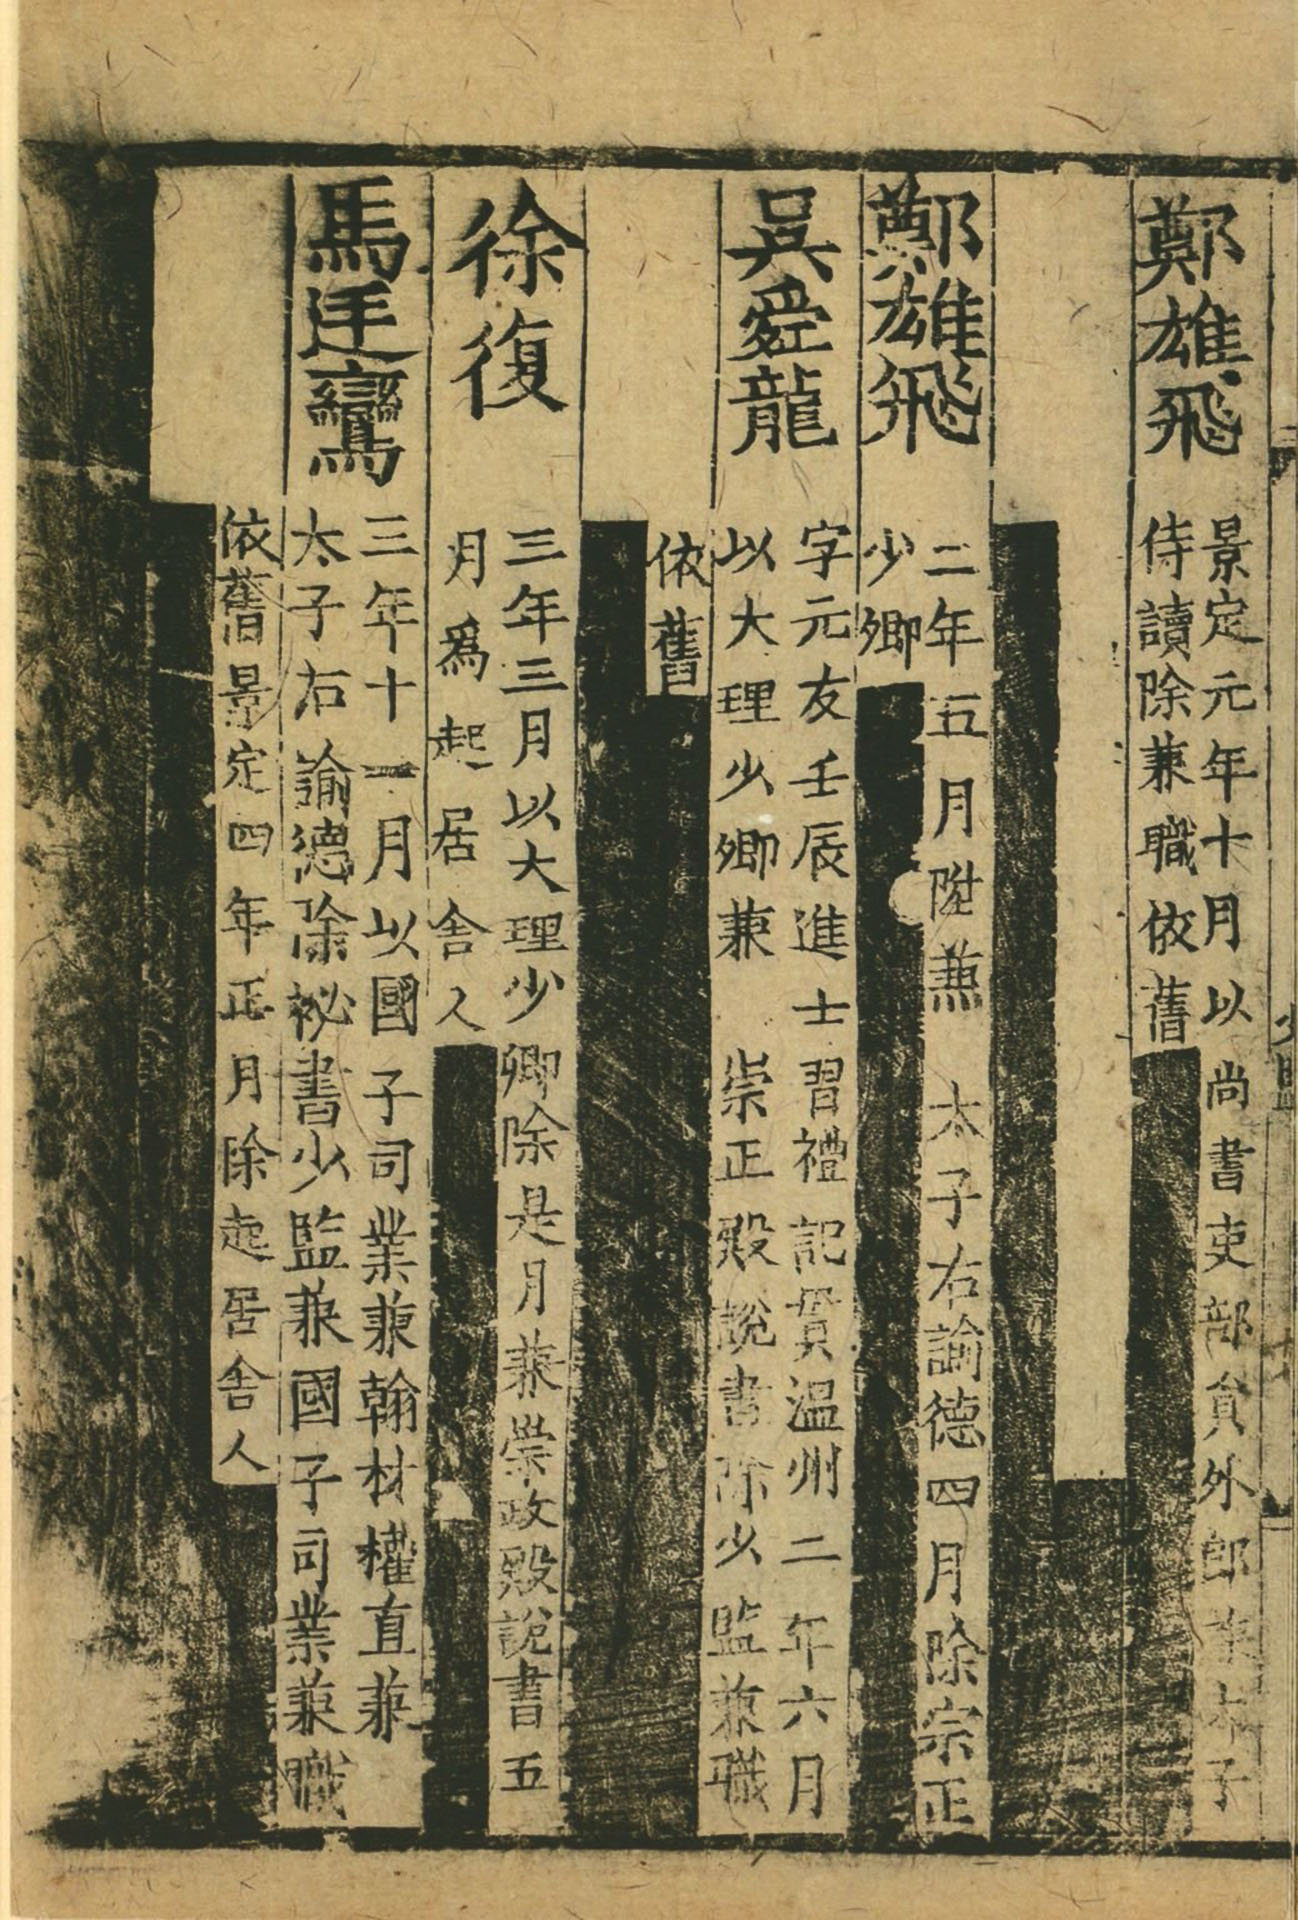 鄭雄飛
景定元年十月以尚書吏部負外郎兼太子
侍讀除兼職依舊
鄭雄飛
二年五月陞兼 太子右諭德四月除宗正
少卿
吳𤣥龍
字元友壬辰進士習禮記貫溫州二年六月
以大理少卿兼 崇正殿說書除少監兼職
依舊
徐復
三年三月以大理少卿除是月兼崇政殿說書五
月爲起居舍人
馬廷鸞
三年十一月以國子司業兼翰林權直兼
太子右諭德除祕書少監兼國子司業兼職
依舊景定四年正月除起居舍人
少監